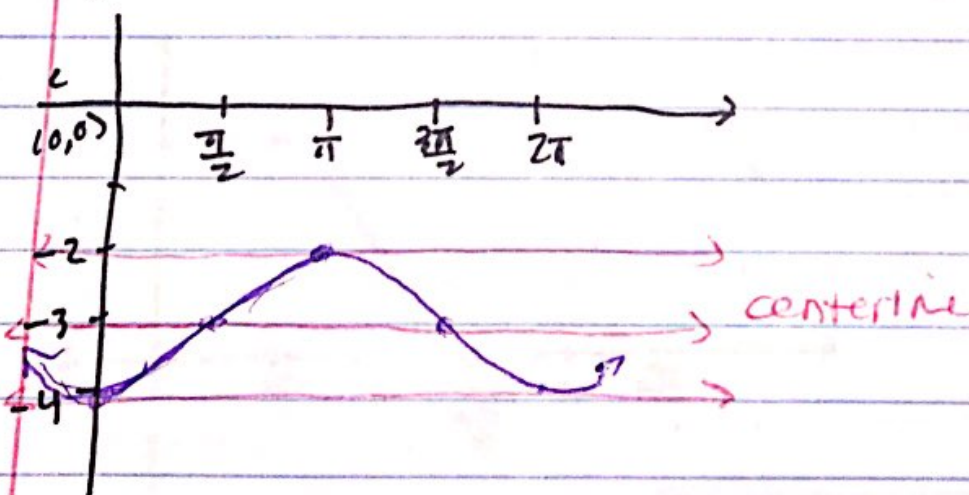 (0,0)
π/2 π 3π/2 2π
-2
-3 centerline
-4